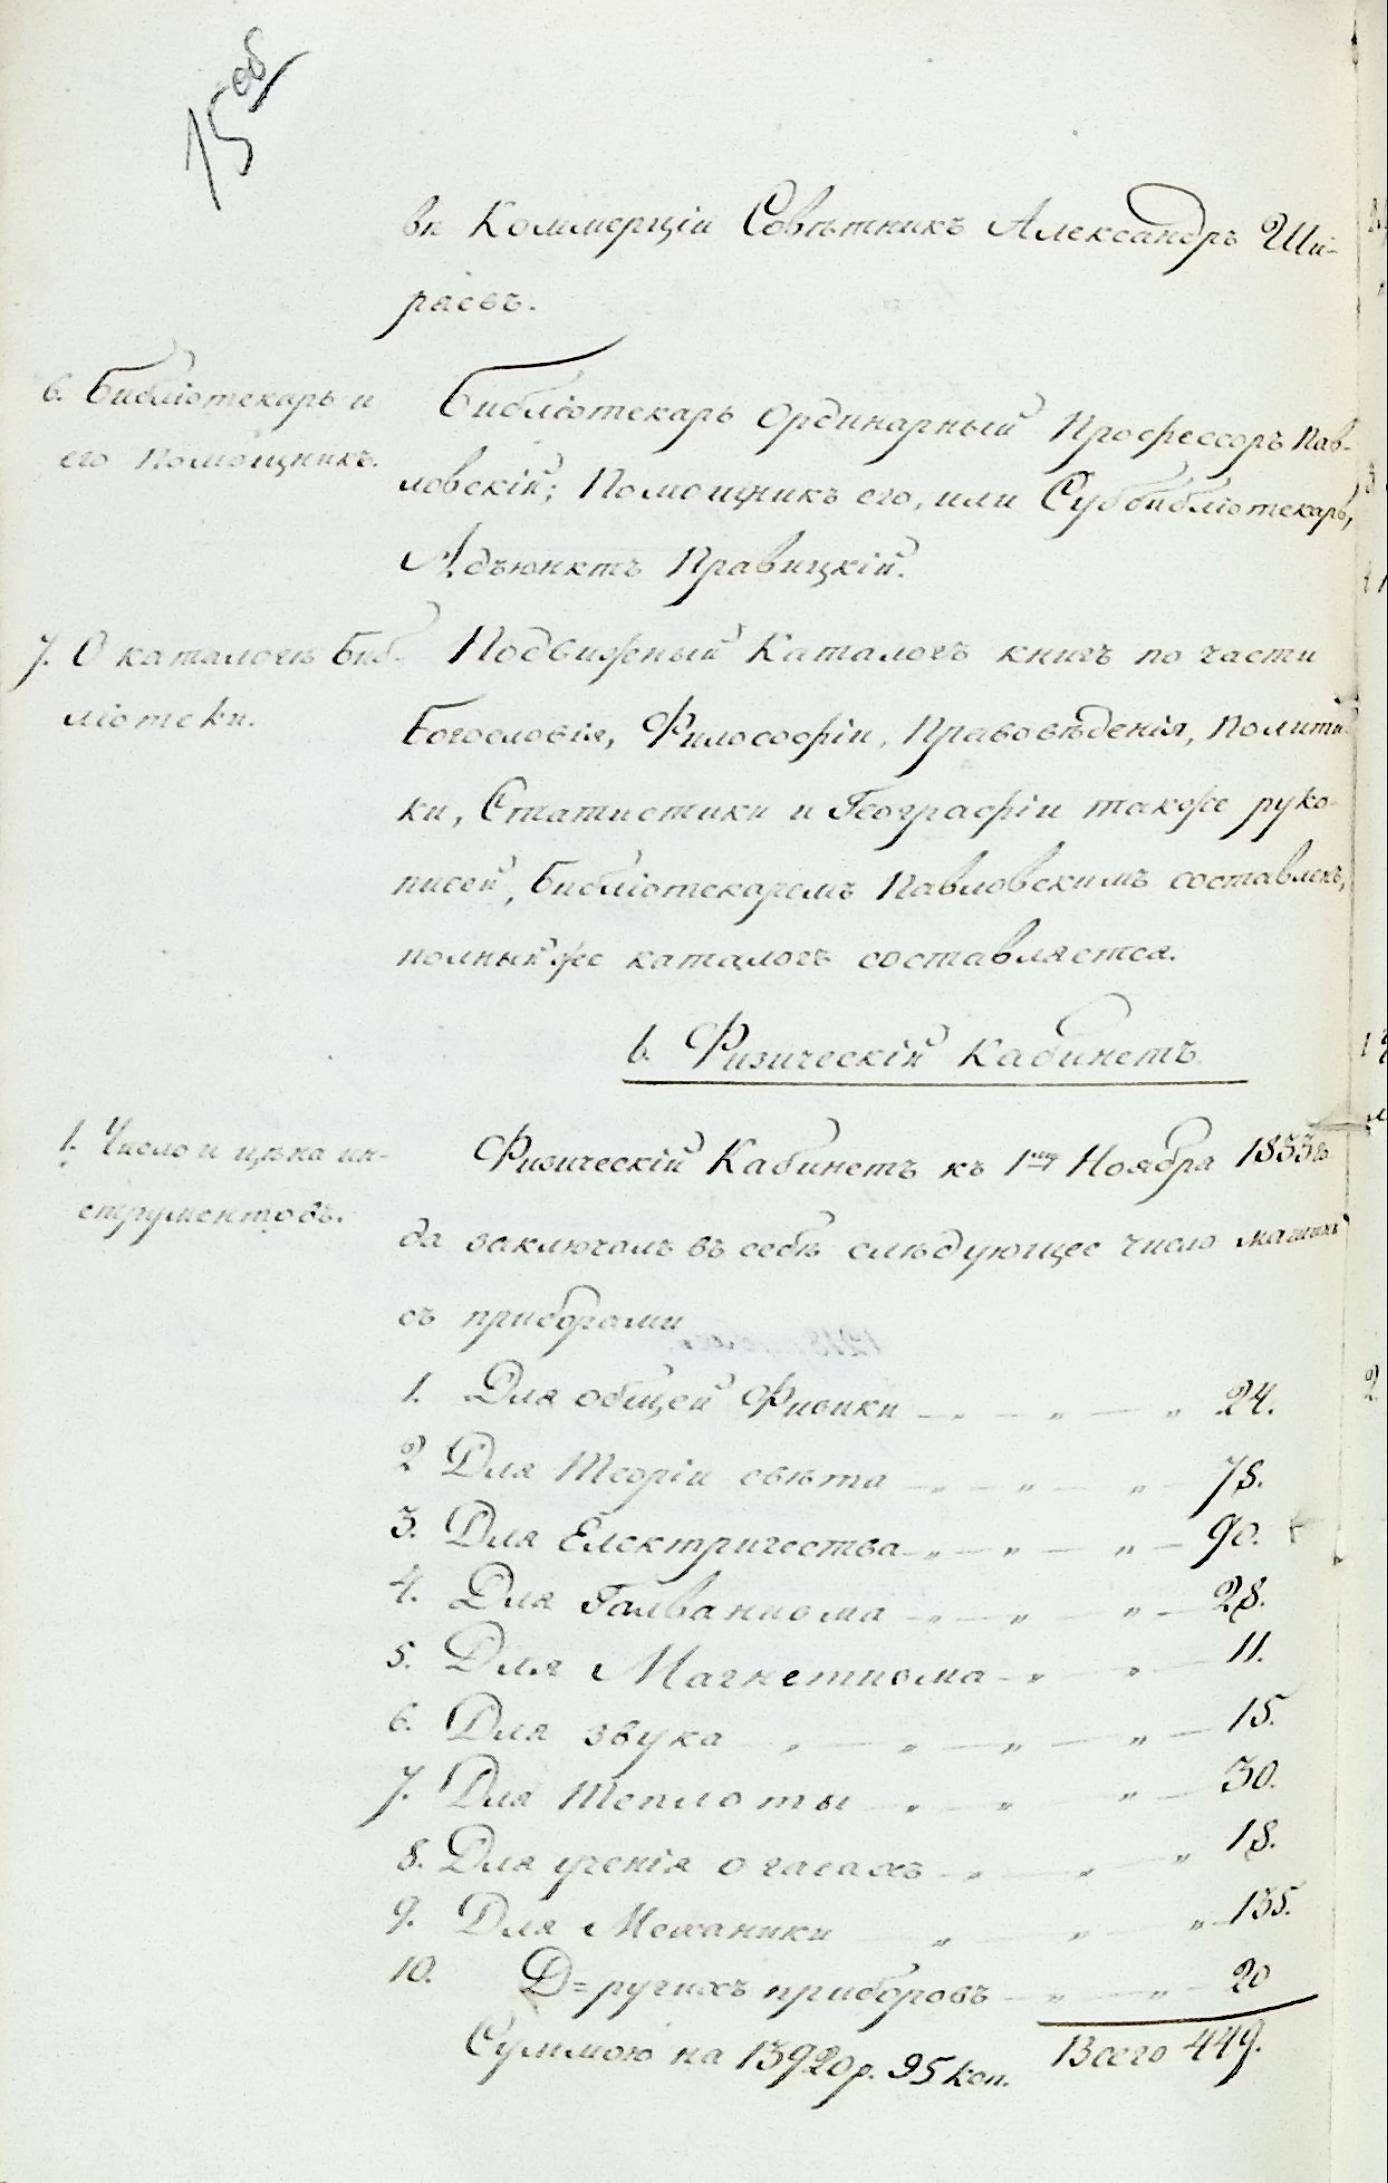 15об
вн Коммерціи Совѣтникъ Александръ Ши-
ряевъ.
6. Библіотекарь и
его Помощникъ.
Библіотекарь Ординарный Профессоръ Пав-
ловскій; Помощникъ его, или Суббибліотекарь,
Адъюнктъ Правицкій.
7. О каталогѣ Биб-
ліотеки.
Подвижный Каталогъ книгъ по части
Богословія, Философіи, Правовѣденія, Полити-
ки, Статистики и Географіи также руко-
писей, Библіотекаремъ Павловскимъ составленъ,
полный же каталогъ составляется.
b. Физическій Кабинетъ
1. Число и цѣна ин-
струментовъ.
Физическій Кабинетъ къ 1му Ноября 1833го-
да заключалъ въ себѣ слѣдующее число машинъ
съ приборами
1. Для общей Физики — „ — „ — „ 24.
2 Для Теоріи свѣта — „ — „ — „ — 78.
3. Для Електричества — „ — „ — „ — 90.
4. Для Галванизма — „ — „ — „ — 28.
5. Для Магнетизма — „ — „ — 11.
6. Для звука — „ — „ — „ — „ — 15.
7. Для Теплоты — „ — „ — „ — 30.
8. Для ученія о газахъ — „ — „ — „ 18.
9. Для Механики — „ — „ — „ — 135.
10. Д=ругихъ приборовъ — „ — „ — 20
Суммою на 13920р. 95 коп. Всего 449.